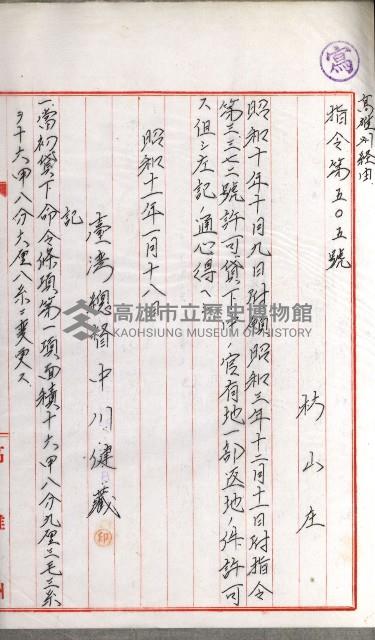 寫
高雄州経由
指令第五〇五號
杉山庄
昭和十年十月九日附願昭和三年十二月十一日附指令
第三三七二號許可貸下中ノ官有地一部返地ノ件許可
ス但シ左記ノ通心得ヘシ
昭和十一年一月十八日
臺灣總督中川健藏
印
記
一、當初貸下命令條項第一項面積十六甲八分九厘三毛三糸
ヲ十六甲八分六厘八糸ニ變更ス
高雄市立歷史博物館
KAOHSIUNG MUSEUM OF HISTORY
高雄州